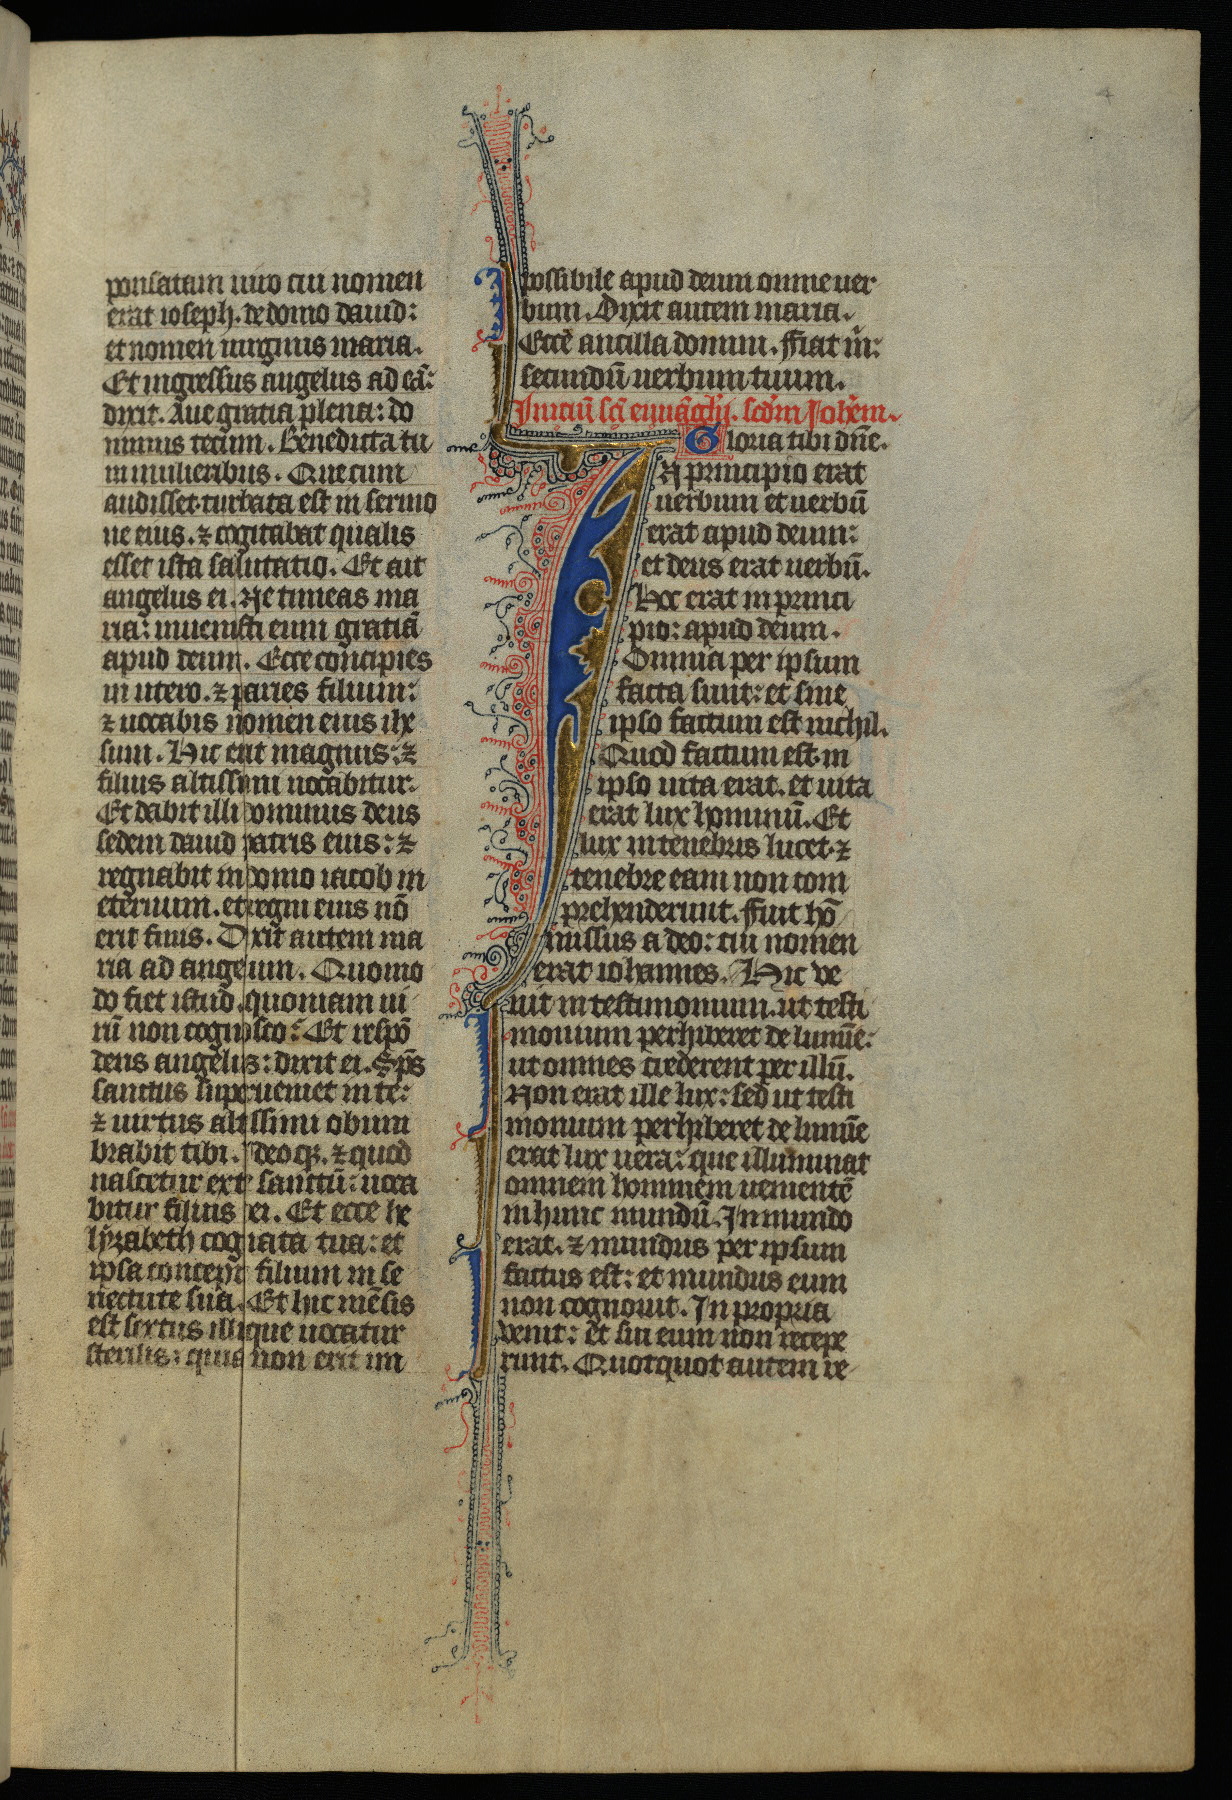 ponsatam uiro cui nomen
erat ioseph. de domo dauid:
et nomen uirginis maria.
Et ingressus angelus ad eā:
dixit. Aue gratia plena: do
minus tecum. Benedicta tu
in mulieribus. Que cum
audisset turbata est in sermo
ne eius. ⁊ cogitabat qualis
esset ista salutatio. Et ait
angelus ei. Ne timeas ma
ria: inuenisti enim gratiā
apud deum. Ecce concipies
in utero. ⁊ paries filium:
⁊ uocabis nomen eius ihe
sum. Hic erit magnus: ⁊
filius altissimi uocabitur.
Et dabit illi dominus deus
sedem dauid patris eius: ⁊
regnabit in domo iacob in
eternum. et regni eius nō
erit finis. Dixit autem ma
ria ad angelum. Quomo
do fiet istud. quoniam ui
rū non cognosco: Et respō
dens angelus: dixit ei. Sp̄s
sanctus superueniet in te:
⁊ uirtus altissimi obum
brabit tibi. Ideoqꝫ ⁊ quod
nascetur ex te sanctū: uoca
bitur filius dei. Et ecce he
lyzabeth cognata tua: et
ipsa concepit filium in se
nectute sua. Et hic mēsis
est sextus illi que uocatur
sterilis: quia non erit im
possibile apud deum omne uer
bum. Dixit autem maria.
Ecce ancilla domini. ffiat m̄:
secundū uerbum tuum.
Iniciū sc̄i euuāḡlij. scd̄m Joh̄em.
Gloria tibi dn̄e.
IN principio erat
uerbum et uerbū
erat apud deum:
et deus erat uerbū.
Hoc erat in princi
pio: apud deum.
Omnia per ipsum
facta sunt: et sine
ipso factum est nichil.
Quod factum est in
ipso uita erat. et uita
erat lux hominū. Et
lux in tenebris lucet ⁊
tenebre eam non com
prehenderunt. ffuit hō
missus a deo: cui nomen
erat iohannes. Hic ve
nit in testimonium. ut testi
monium perhiberet de lumīe:
ut omnes crederent per illū.
Non erat ille lux: sed ut testi
monium perhiberet de lumīe
erat lux uera: que illuminat
omnem hominem uenientē
in hunc mundū. In mundo
erat. ⁊ mundus per ipsum
factus est: et mundus eum
non cognouit. In propria
venit: et sui eum non recepe
runt. Quotquot autem re